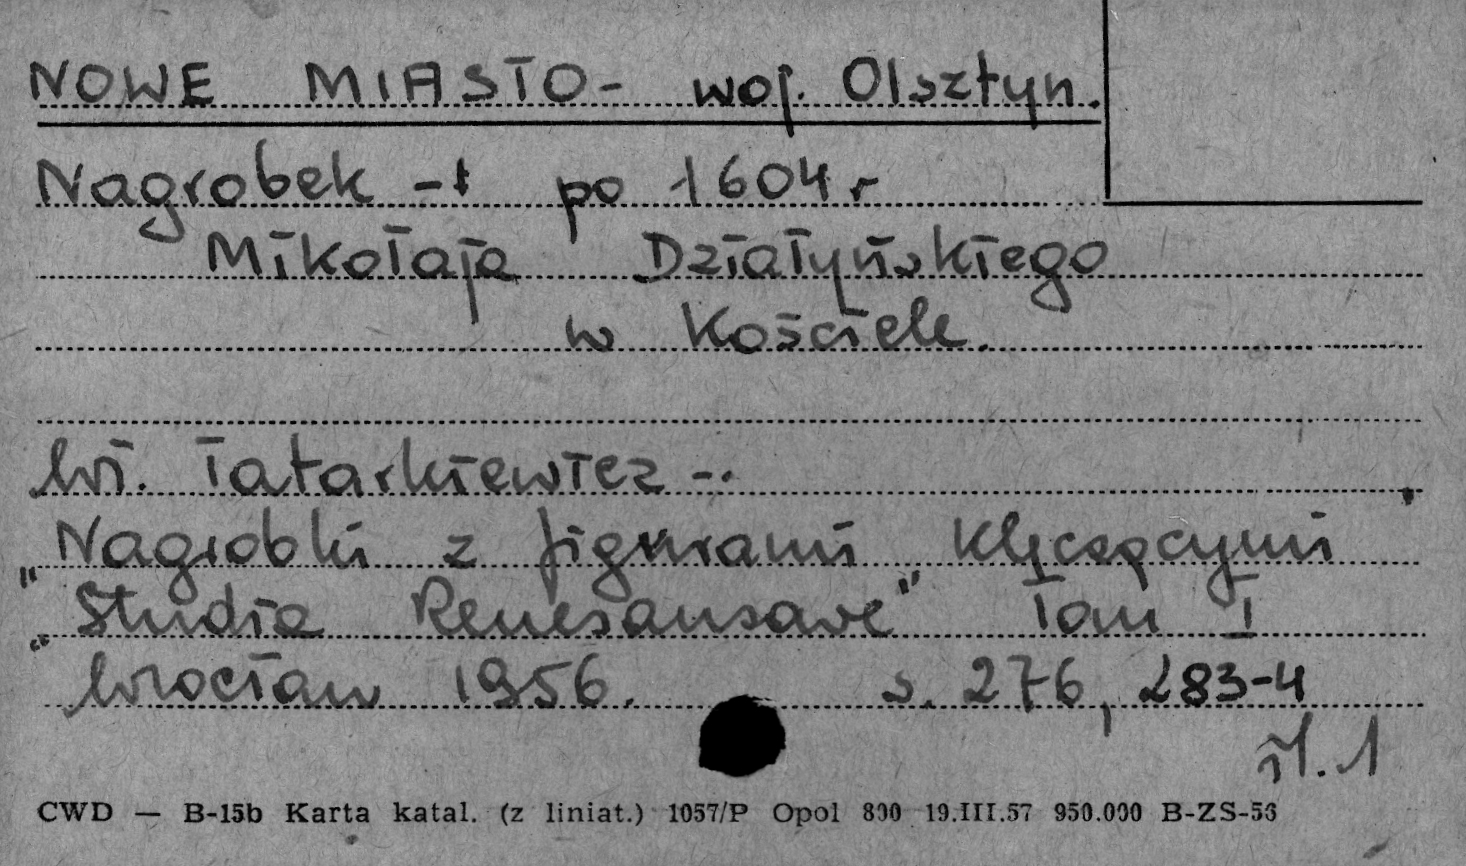 NOWE MIASTO - woj. Olsztyn.
Nagrobek - † po 1604 r
Mikołaja Działyńskiego
w Kościele.
Wł. Tatarkiewicz -
Nagrobki z figurami Klęczącymi
"Studia Renesansowe" Tom I
Wrocław 1956. s. 276, 283-4
il. 1
CWD — B-15b Karta katal. (z liniat.) 1057/P Opol 800 19.III.57 950.000 B-ZS-53